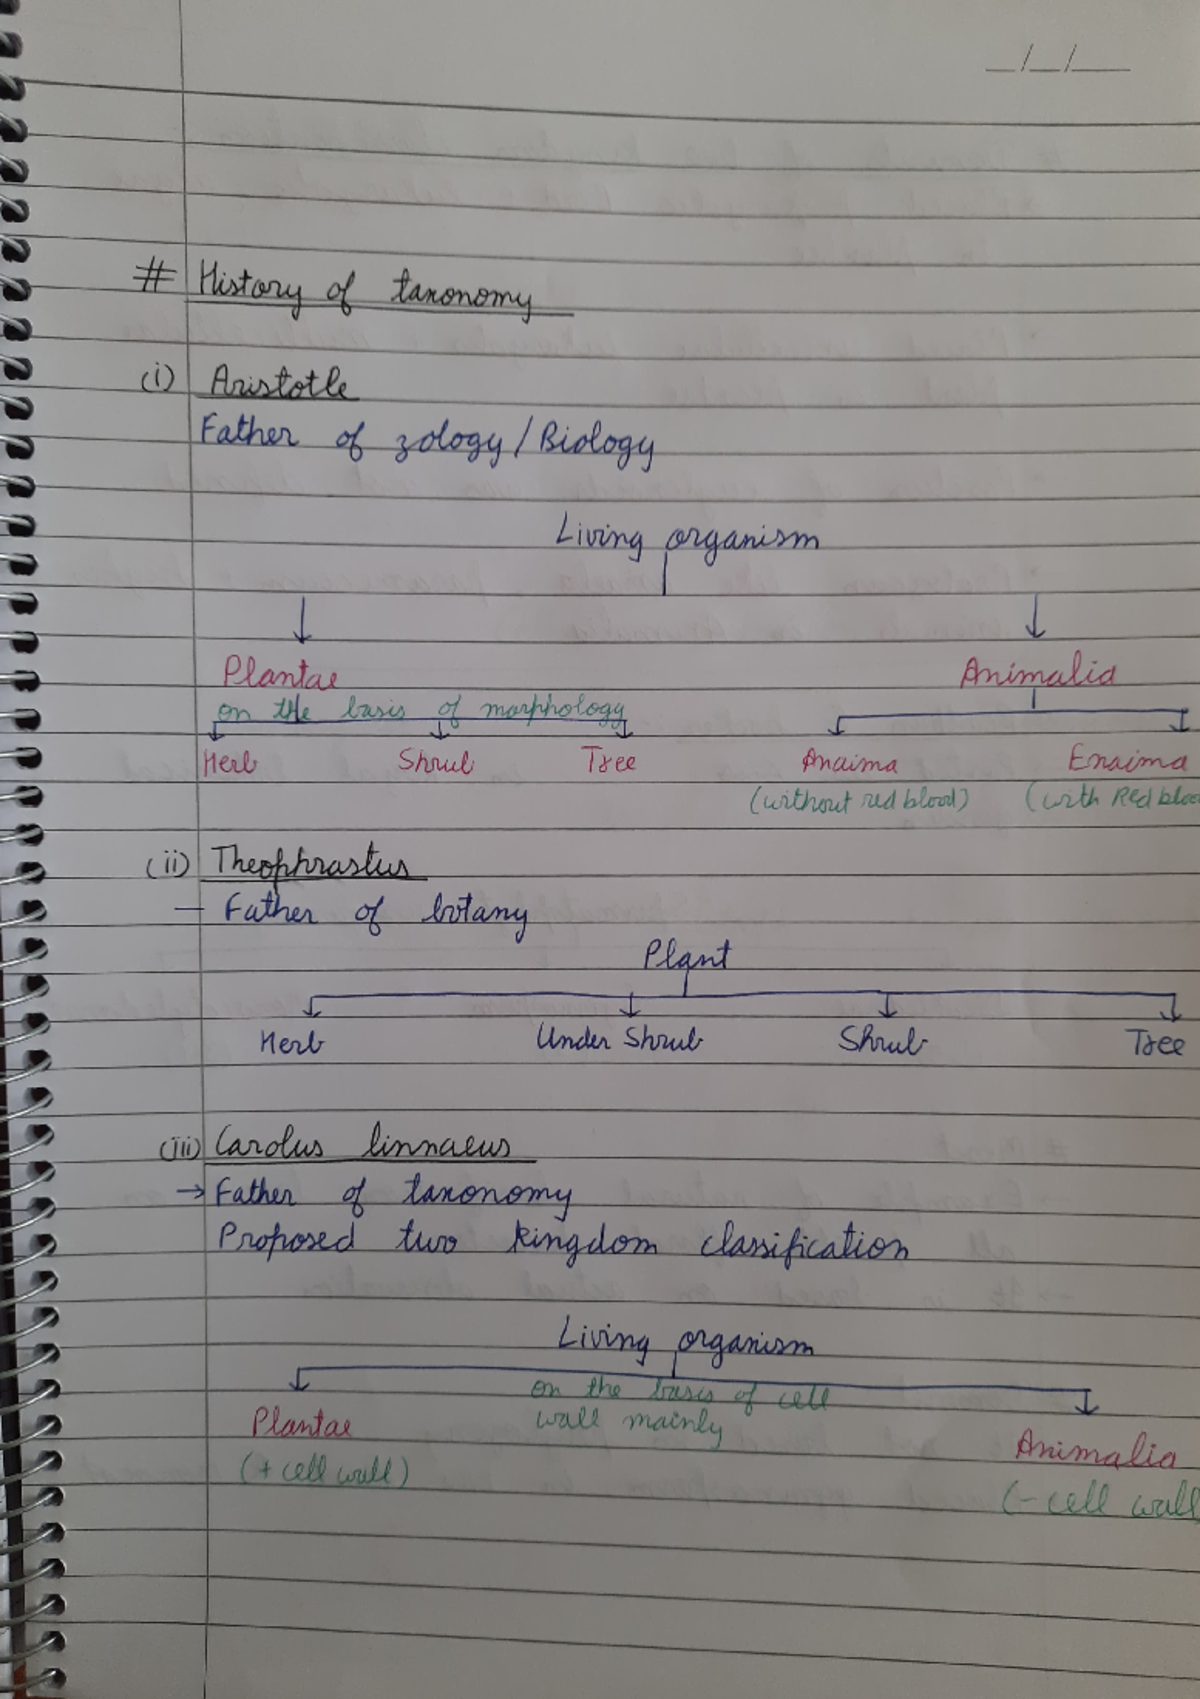 _/_/_
# History of taxonomy
(i) Aristotle
Father of zology / Biology
Living organism
Plantae Animalia
on the basis of morphology
Herb Shrub Tree Anaima Enaima
(without red blood) (with Red bloo
(ii) Theophrastus
— Father of botany
Plant
Herb Under Shrub Shrub Tree
(iii) Carolus linnaeus
→ Father of taxonomy
Proposed two kingdom classification
Living organism
on the basis of cell
Plantae wall mainly Animalia
(+ cell wall) (- cell wall